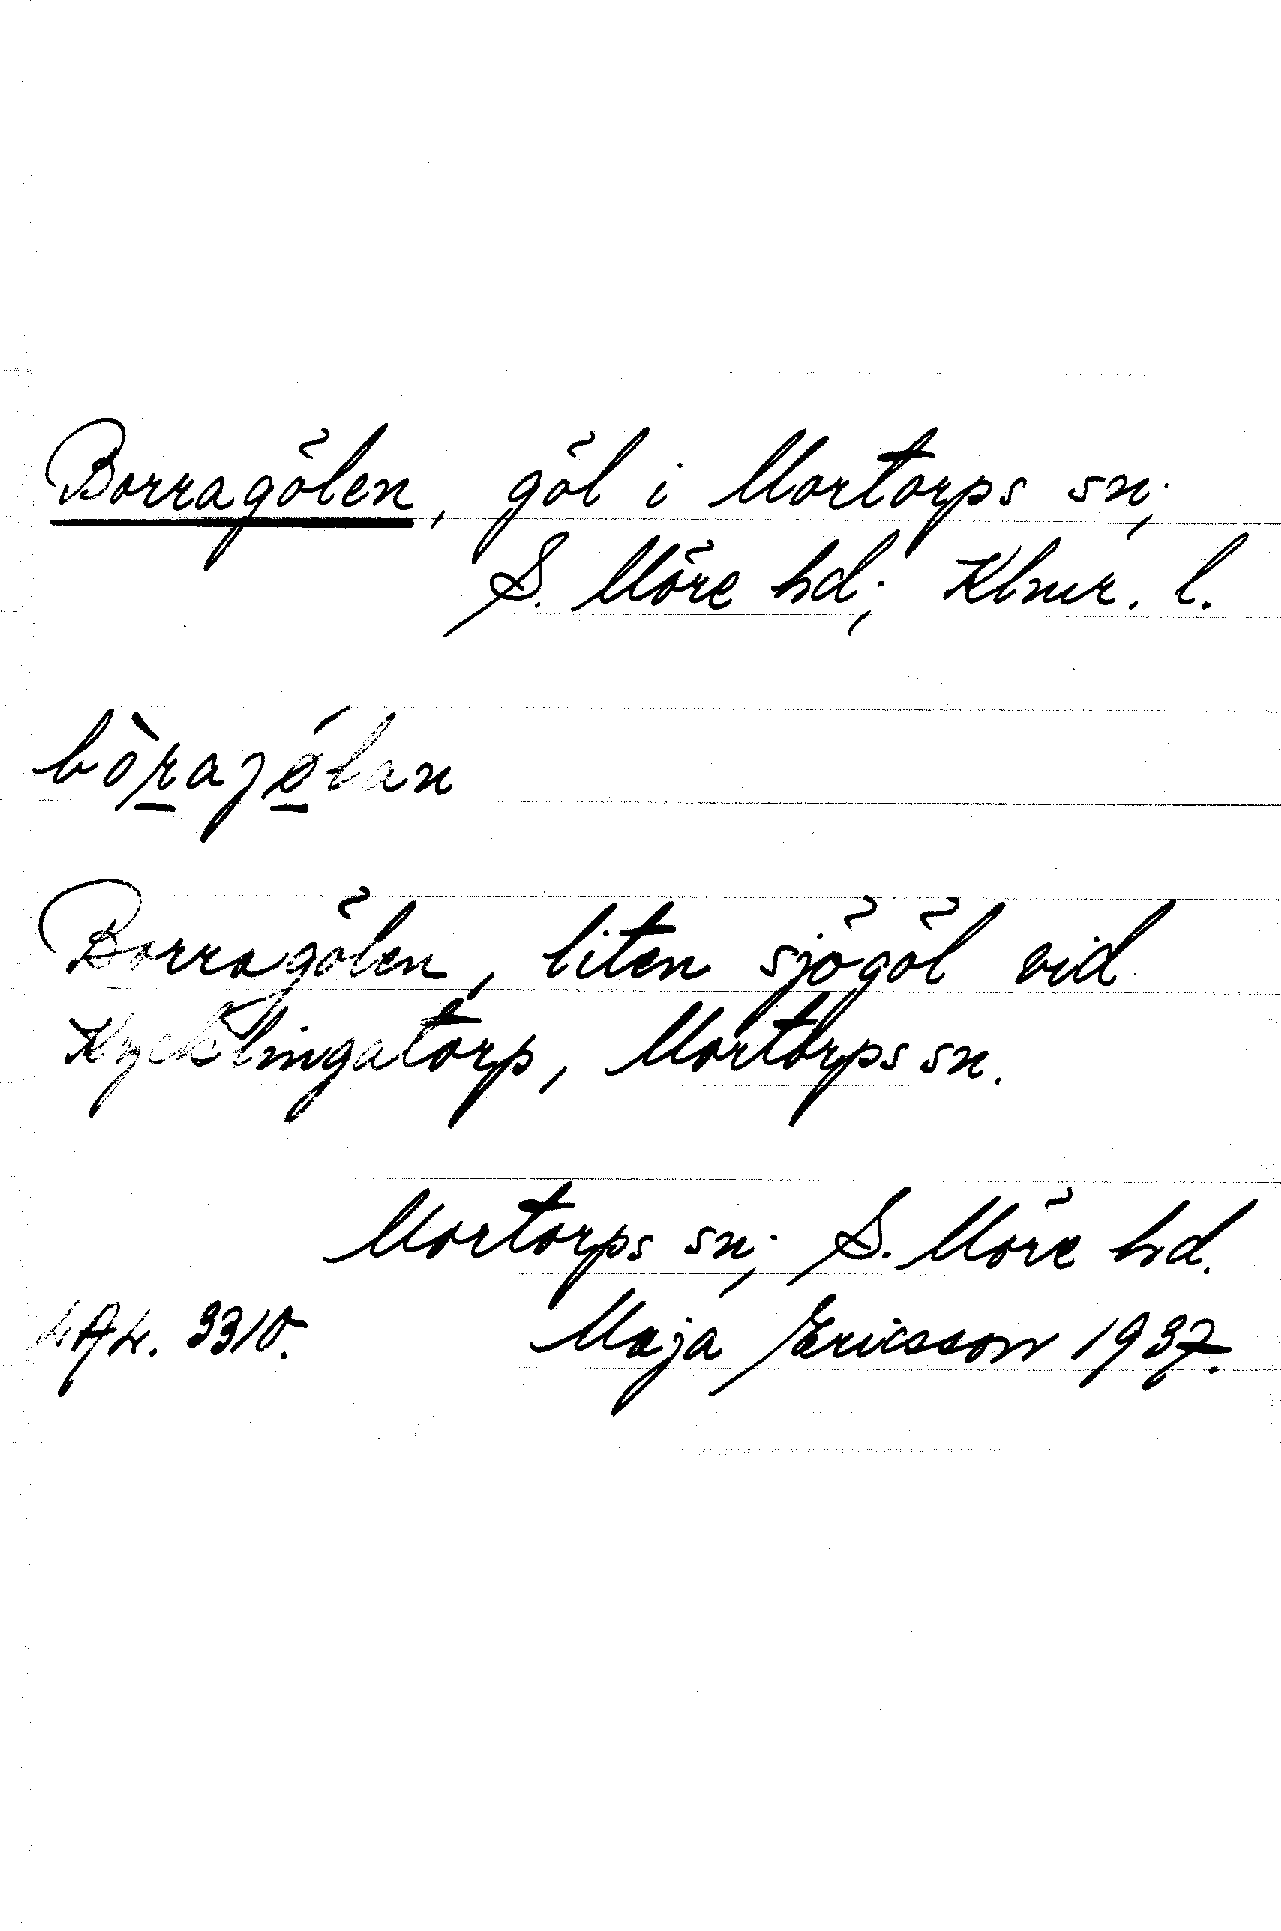 Borragölen, göl i Mortorps sn;
S. Möre hd; Klmr. l.
bòrajǿlan
Borragölen, liten sjögöl vid
Kycklingatorp, Mortorps sn.
Mortorps sn; S. Möre hd.
3310. Maja Ericsson 1937.